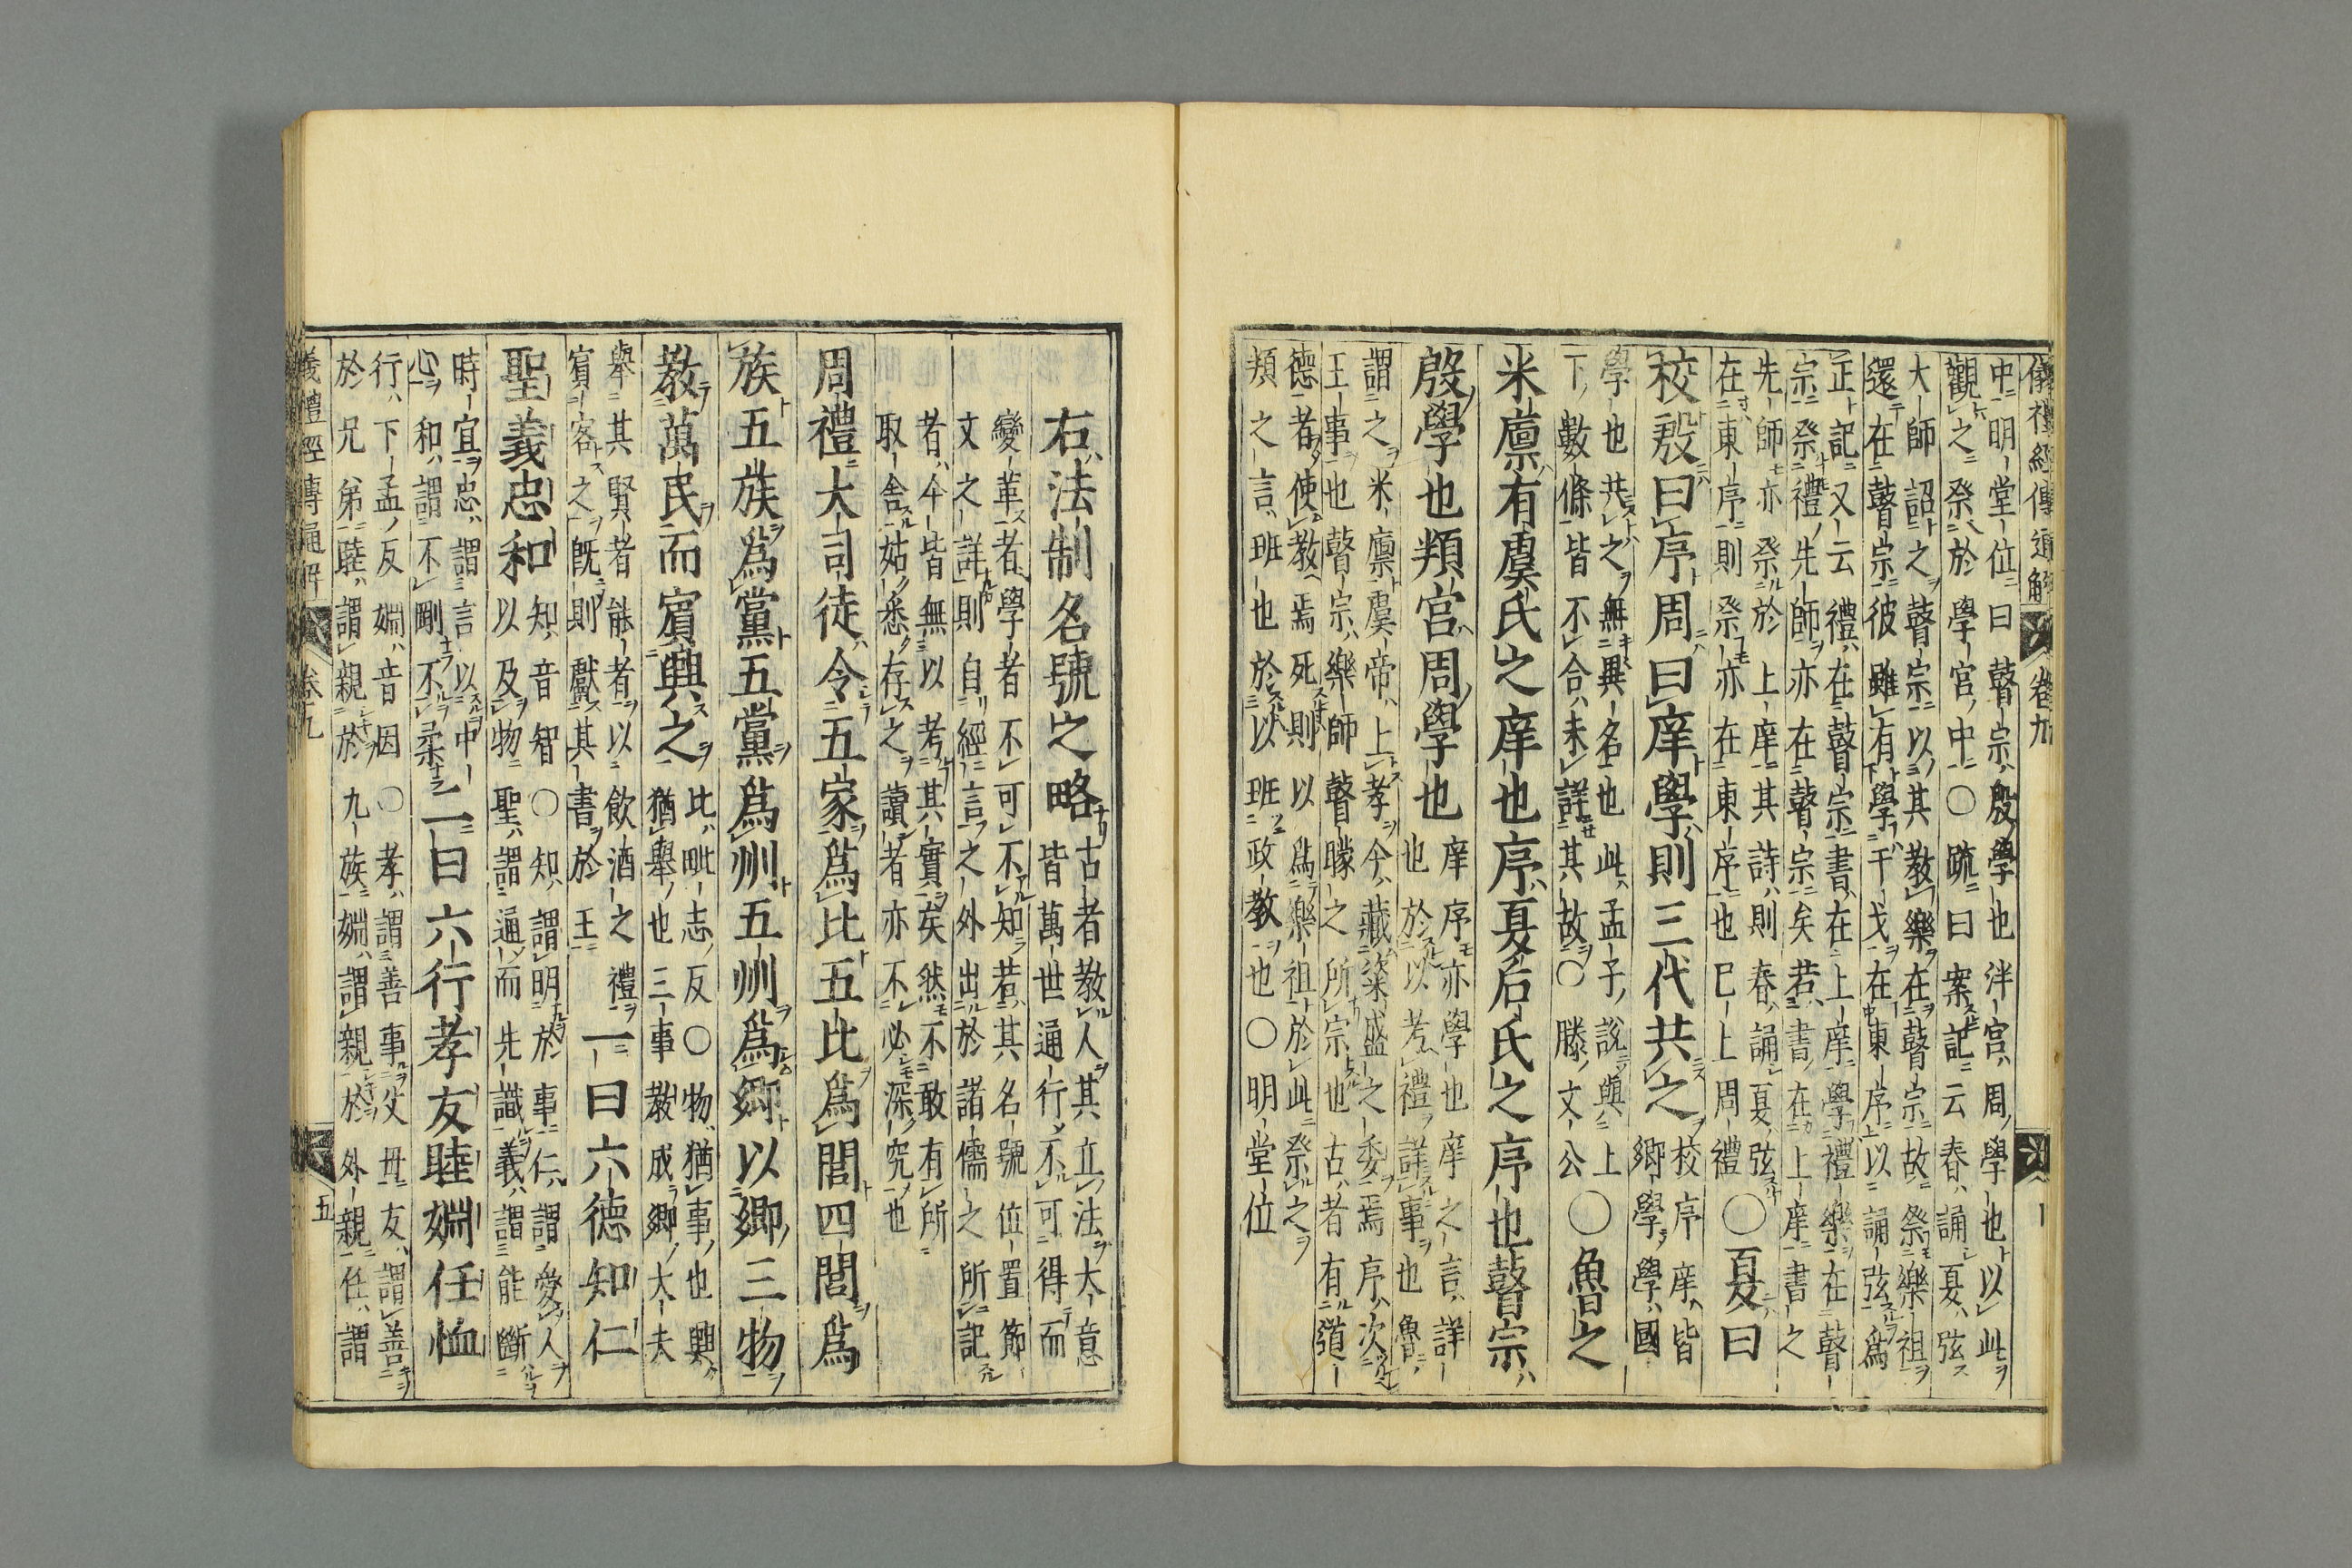 儀禮經傳通解 卷九
中明堂位曰瞽宗殷學也泮宮周學也以此
觀之祭於學宮中○䟽曰案記云春誦夏弦
大師詔之瞽宗以其教樂在瞽宗故祭樂祖
還在瞽宗彼雖有學干戈在東序以誦弦爲
正記又云禮在瞽宗書在上庠學禮樂在瞽
宗祭禮先師亦在瞽宗矣若書在上庠書之
先師亦祭於上庠其詩則春誦夏弦
在東序則祭亦在東序也已上周禮
○夏曰
校殷曰序周曰庠學則三代共之
校序庠皆
鄉學學國
學也共之無異名也此孟子說與上
下數條皆不合未詳其故○滕文公
○魯之
米廩有虞氏之庠也序夏后氏之序也瞽宗
殷學也頖宮周學也
庠序亦學也庠之言詳
也於以考禮詳事也魯
謂之米廩虞帝上孝今藏粢盛之委焉序次
王事也瞽宗樂師瞽矇之所宗也古者有道
德者使教焉死則以爲樂祖於此祭之
頖之言班也於以班政教也○明堂位
右法制名號之略
古者教人其立法大意
皆萬世通行不可得而
變革者學者不可不知若其名號位置節
文之詳則自經言之外出於諸儒之所記
者今皆無以考其實矣然不敢有所
取舍姑悉存之讀者亦不必深究也
周禮大司徒令五家爲比五比爲閭四閭爲
族五族爲黨五黨爲州五州爲鄉以鄉三物
教萬民而賓興之
比毗志反○物猶事也興
猶舉也三事教成鄉大夫
舉其賢者能者以飲酒之禮
賓客之旣則獻其書於王
一曰六德知仁
聖義忠和
知音智○知謂明於事仁謂愛人
以及物聖謂通而先識義謂能斷
時宜忠謂言以中
心和謂不剛不柔
二曰六行孝友睦婣任恤
行下孟反婣音因○孝謂善事父母友謂善
於兄弟睦謂親於九族婣謂親於外親任謂
儀禮經傳通解 卷九 五